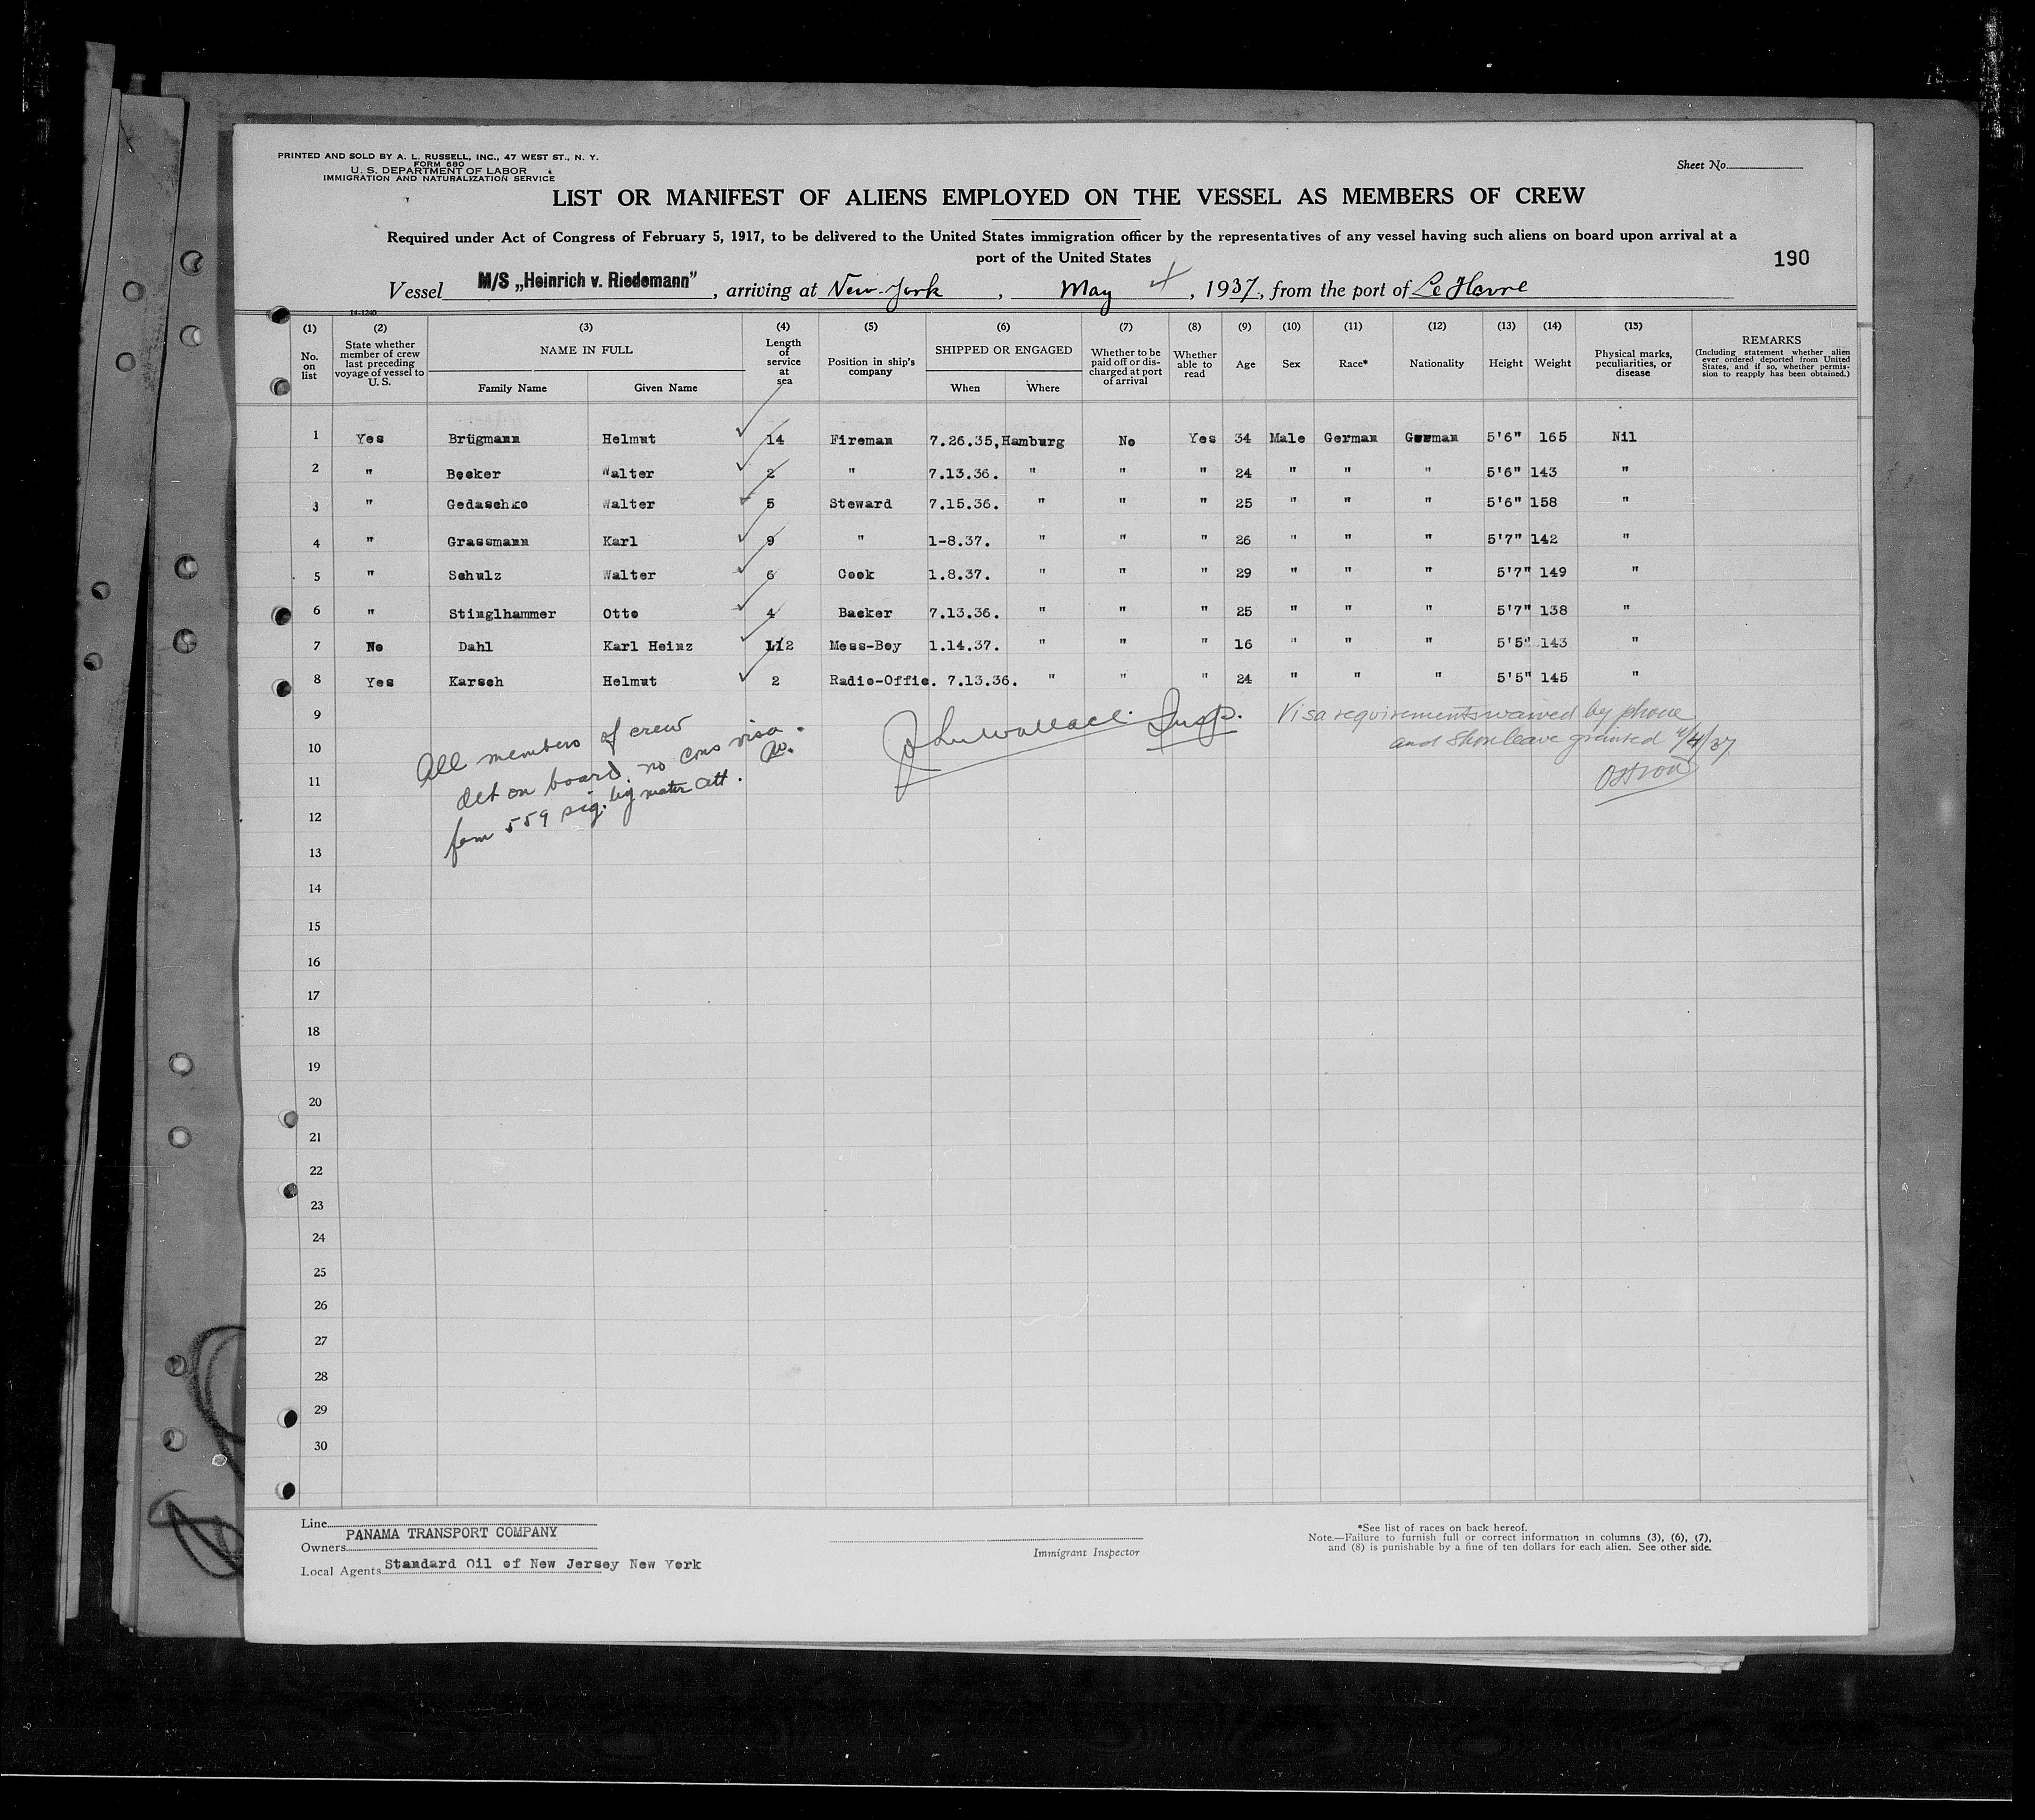 PRINTED AND SOLD BY A. L. RUSSELL, INC., 47 WEST ST., N. Y.
FORM 680
U. S. DEPARTMENT OF LABOR
IMMIGRATION AND NATURALIZATION SERVICE
Sheet No.
LIST OR MANIFEST OF ALIENS EMPLOYED ON THE VESSEL AS MEMBERS OF CREW
Required under Act of Congress of February 5, 1917, to be delivered to the United States immigration officer by the representatives of any vessel having such aliens on board upon arrival at a
port of the United States
190
Vessel M/S „Heinrich v. Riedemann” , arriving at New-York , May 4 , 1937, from the port of Le Havre
14-1240
(1) (2) (3) (4) (5) (6) (7) (8) (9) (10) (11) (12) (13) (14) (15)
No. on list State whether member of crew last preceding voyage of vessel to U. S. NAME IN FULL Family Name Given Name Length of service at sea Position in ship's company SHIPPED OR ENGAGED When Where Whether to be paid off or discharged at port of arrival Whether able to read Age Sex Race* Nationality Height Weight Physical marks, peculiarities, or disease REMARKS (Including statement whether alien ever ordered deported from United States, and if so, whether permission to reapply has been obtained.)
1 Yes Brügmann Helmut 14 Fireman 7.26.35, Hamburg No Yes 34 Male German German 5'6" 165 Nil
2 " Becker Walter 2 " 7.13.36. " " " 24 " " " 5'6" 143 "
3 " Gedaschke Walter 5 Steward 7.15.36. " " " 25 " " " 5'6" 158 "
4 " Grassmann Karl 9 " 1-8.37. " " " 26 " " " 5'7" 142 "
5 " Schulz Walter 6 Cook 1.8.37. " " " 29 " " " 5'7" 149 "
6 " Stinglhammer Otto 4 Backer 7.13.36. " " " 25 " " " 5'7" 138 "
7 No Dahl Karl Heinz 1/2 Mess-Boy 1.14.37. " " " 16 " " " 5'5" 143 "
8 Yes Karsch Helmut 2 Radio-Offic. 7.13.36. " " " 24 " " " 5'5" 145 "
9
10
11
12
13
14
15
16
17
18
19
20
21
22
23
24
25
26
27
28
29
30
All members of crew
det on board, no cons visa.
form 559 sig. by master att.
John Wallace. Insp.
Visa requirements waived by phone
and shore leave granted
Line
PANAMA TRANSPORT COMPANY
Owners
Local Agents Standard Oil of New Jersey New York
Immigrant Inspector
*See list of races on back hereof.
Note.—Failure to furnish full or correct information in columns (3), (6), (7),
and (8) is punishable by a fine of ten dollars for each alien. See other side.